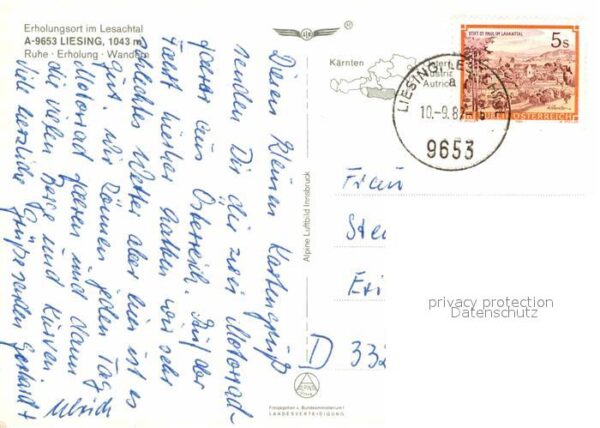 Erholungsort im Lesachtal
A-9653 LIESING, 1043 m
Ruhe · Erholung · Wandern
Diesen kleinen Kartengruß
senden Dir die zwei Motorrad-
fahrer aus Österreich. Auf der
Fahrt hierher hatten wir sehr
schlechtes Wetter aber hier ist es
gut. Wir können jeden Tag
Motorrad fahren und dann
die vielen Berge und Kurven
Viele herzliche Grüße senden Gerhard +
Ulrich
Alpine Luftbild Innsbruck
Kärnten
Austria
STIFT ST. PAUL IM LAVANTTAL
5s
REPUBLIK ÖSTERREICH
LIESING, LE
a
10.-9.8
9653
Frau
Ste
Eri
D 332
privacy protection
Datenschutz
ALPINE
Freigegeben v. Bundesministerium f.
LANDESVERTEIDIGUNG